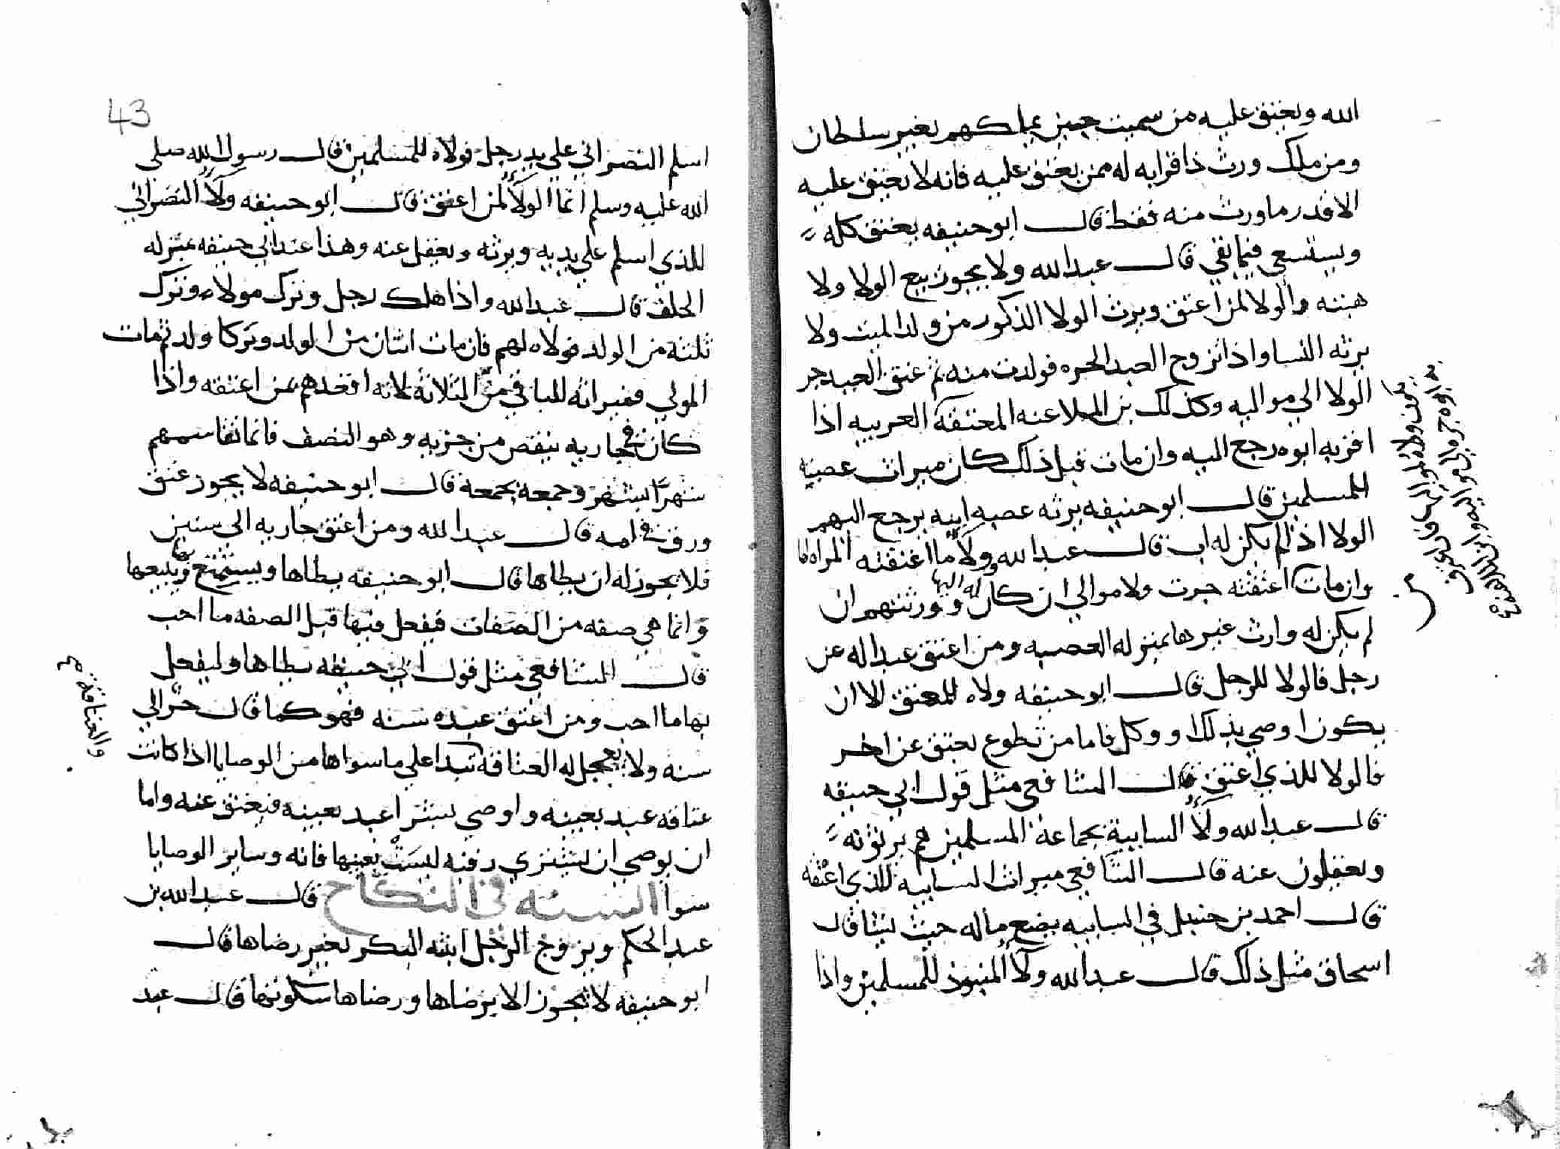 الله ويعتق عليه من سميت حين يملكهم بغير سلطان
ومن ملك ورث ذا قرابه له ممن يعتق عليه فانه لا يعتق عليه
الا قدر ما ورث منه فقط قال ابو حنيفه يعتق كله
ويستسعي فيما بقي قال عبد الله ولا يجوز بيع الولا ولا
هبته والولا لمن اعتق ويرث الولا الذكور من ولد الميت ولا
يرثه النسا واذا تزوج العبد الحره فولدت منه ثم عتق العبد جر
الولا الي مواليه وكذلك بن الملاعنه المعتقه العربيه اذا
اقر به ابوه رجع اليه وان مات قبل ذلك كان ميراث عصبه
للمسلمين قال ابو حنيفه يرثه عصبه ابيه يرجع اليهم
الولا اذ الم يكن له اب قال عبد الله وولا ما اعتقته المراه لها
وان مات اعتقته جرت ولا موالي ان كان له اليها وورثتهم ان
لم يكن له وارث غيرها بمنزله العصبه ومن اعتق عبدا له عن
رجل فالولا للرجل قال ابو حنيفه ولاه للمعتق الا ان
يكون اوصي بذلك او وكل فاما من تطوع بعتق عن اخر
فالولا للذي اعتق قال الشافعي مثل قول ابي حنيفه
قال عبد الله وولا السايبة بجماعة المسلمين هم يرثونه
ويعقلون عنه قال الشافعي ميراث السايبه للذي اعتقه
قال احمد بن حنبل في السايبه يضع ماله حيث يشا قال
اسحاق مثل ذلك قال عبد الله وولا المنبوذ للمسلمين واذا
43
اسلم النصراني علي يد رجل فولاه للمسلمين قال رسول الله صلي
الله عليه وسلم انما الولا لمن اعتق قال ابو حنيفه وولا النصراني
للذي اسلم علي يديه ويرثه ويعقل عنه وهذا عند ابي حنيفه بمنزله
الحلف قال عبد الله واذا هلك رجل وترك مولاه وترك
ثلثة من الولد فولاه لهم فان مات اثنان من الولد وتركا ولد ثم مات
المولي فميراثه للباقي من الثلاثة لانه اقعدهم بمن اعتقه واذا
كان في جاريه ينقص من جزيه وهو النصف فانما تقاسمهم
شهرا بشهر وجمعه بجمعة قال ابو حنيفه لا يجوز عتق
ورق في امه قال عبد الله ومن اعتق جاريه الي سنين
فلا يجوز له ان يطاها قال ابو حنيفه يطاها ويستمتع بها ويبيعها
وانما هي صفه من الصفات فيفعل فيها قبل الصفه ما احب
قال الشافعي مثل قول ابي حنيفه يطاها وليفعل
بها ما احب ومن اعتق عبده سنه فهو كما قال حر الي
سنه ولا يعجل له العتاقه تبدا علي ما سواها من الوصايا اذا كانت
والعتاقة
عتاقه عبد بعينه واوصي بشرا عبد بعينه فيعتق عنه واما
ان يوصي ان يشتري رقبه ليست بعينها فانه وساير الوصايا
سوا السنه في النكاح قال عبد الله بن
عبد الحكم ويزوج الرجل ابنته البكر بغير رضاها قال
ابو حنيفه لا يجوز الا برضاها ورضاها سكوتها قال عبد